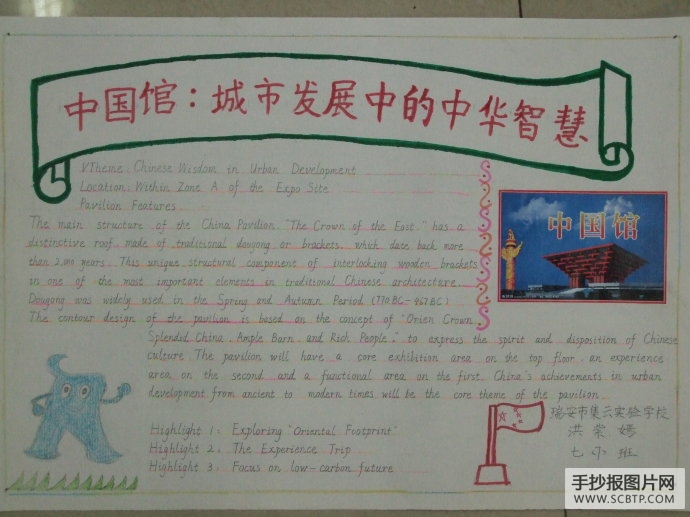 中国馆：城市发展中的中华智慧
VTheme: Chinese Wisdom in Urban Development
Location: Within Zone A of the Expo Site
Pavilion Features
The main structure of the China Pavilion, "The Crown of the East," has a
distinctive roof, made of traditional dougong or brackets, which date back more
than 2,000 years. This unique structural component of interlocking wooden brackets
in one of the most important elements in traditional Chinese architecture.
Dougong was widely used in the Spring and Autumn Period (770BC-467BC)
The contour design of the pavilion is based on the concept of "Orien Crown,
Splendid China, Ample Barn, and Rich People," to express the spirit and disposition of Chinese
culture. The pavilion will have a core exhibition area on the top floor, an experience
area on the second and a functional area on the first. China's achievements in urban
development from ancient to modern times will be the core theme of the pavilion.
Highlight 1: Exploring "Oriental Footprint"
Highlight 2: The Experience Trip
Highlight 3: Focus on low-carbon future
中国馆
瑞安市集云实验学校
洪
嫣
七
班
手抄报图片网
WWW.SCBTP.COM